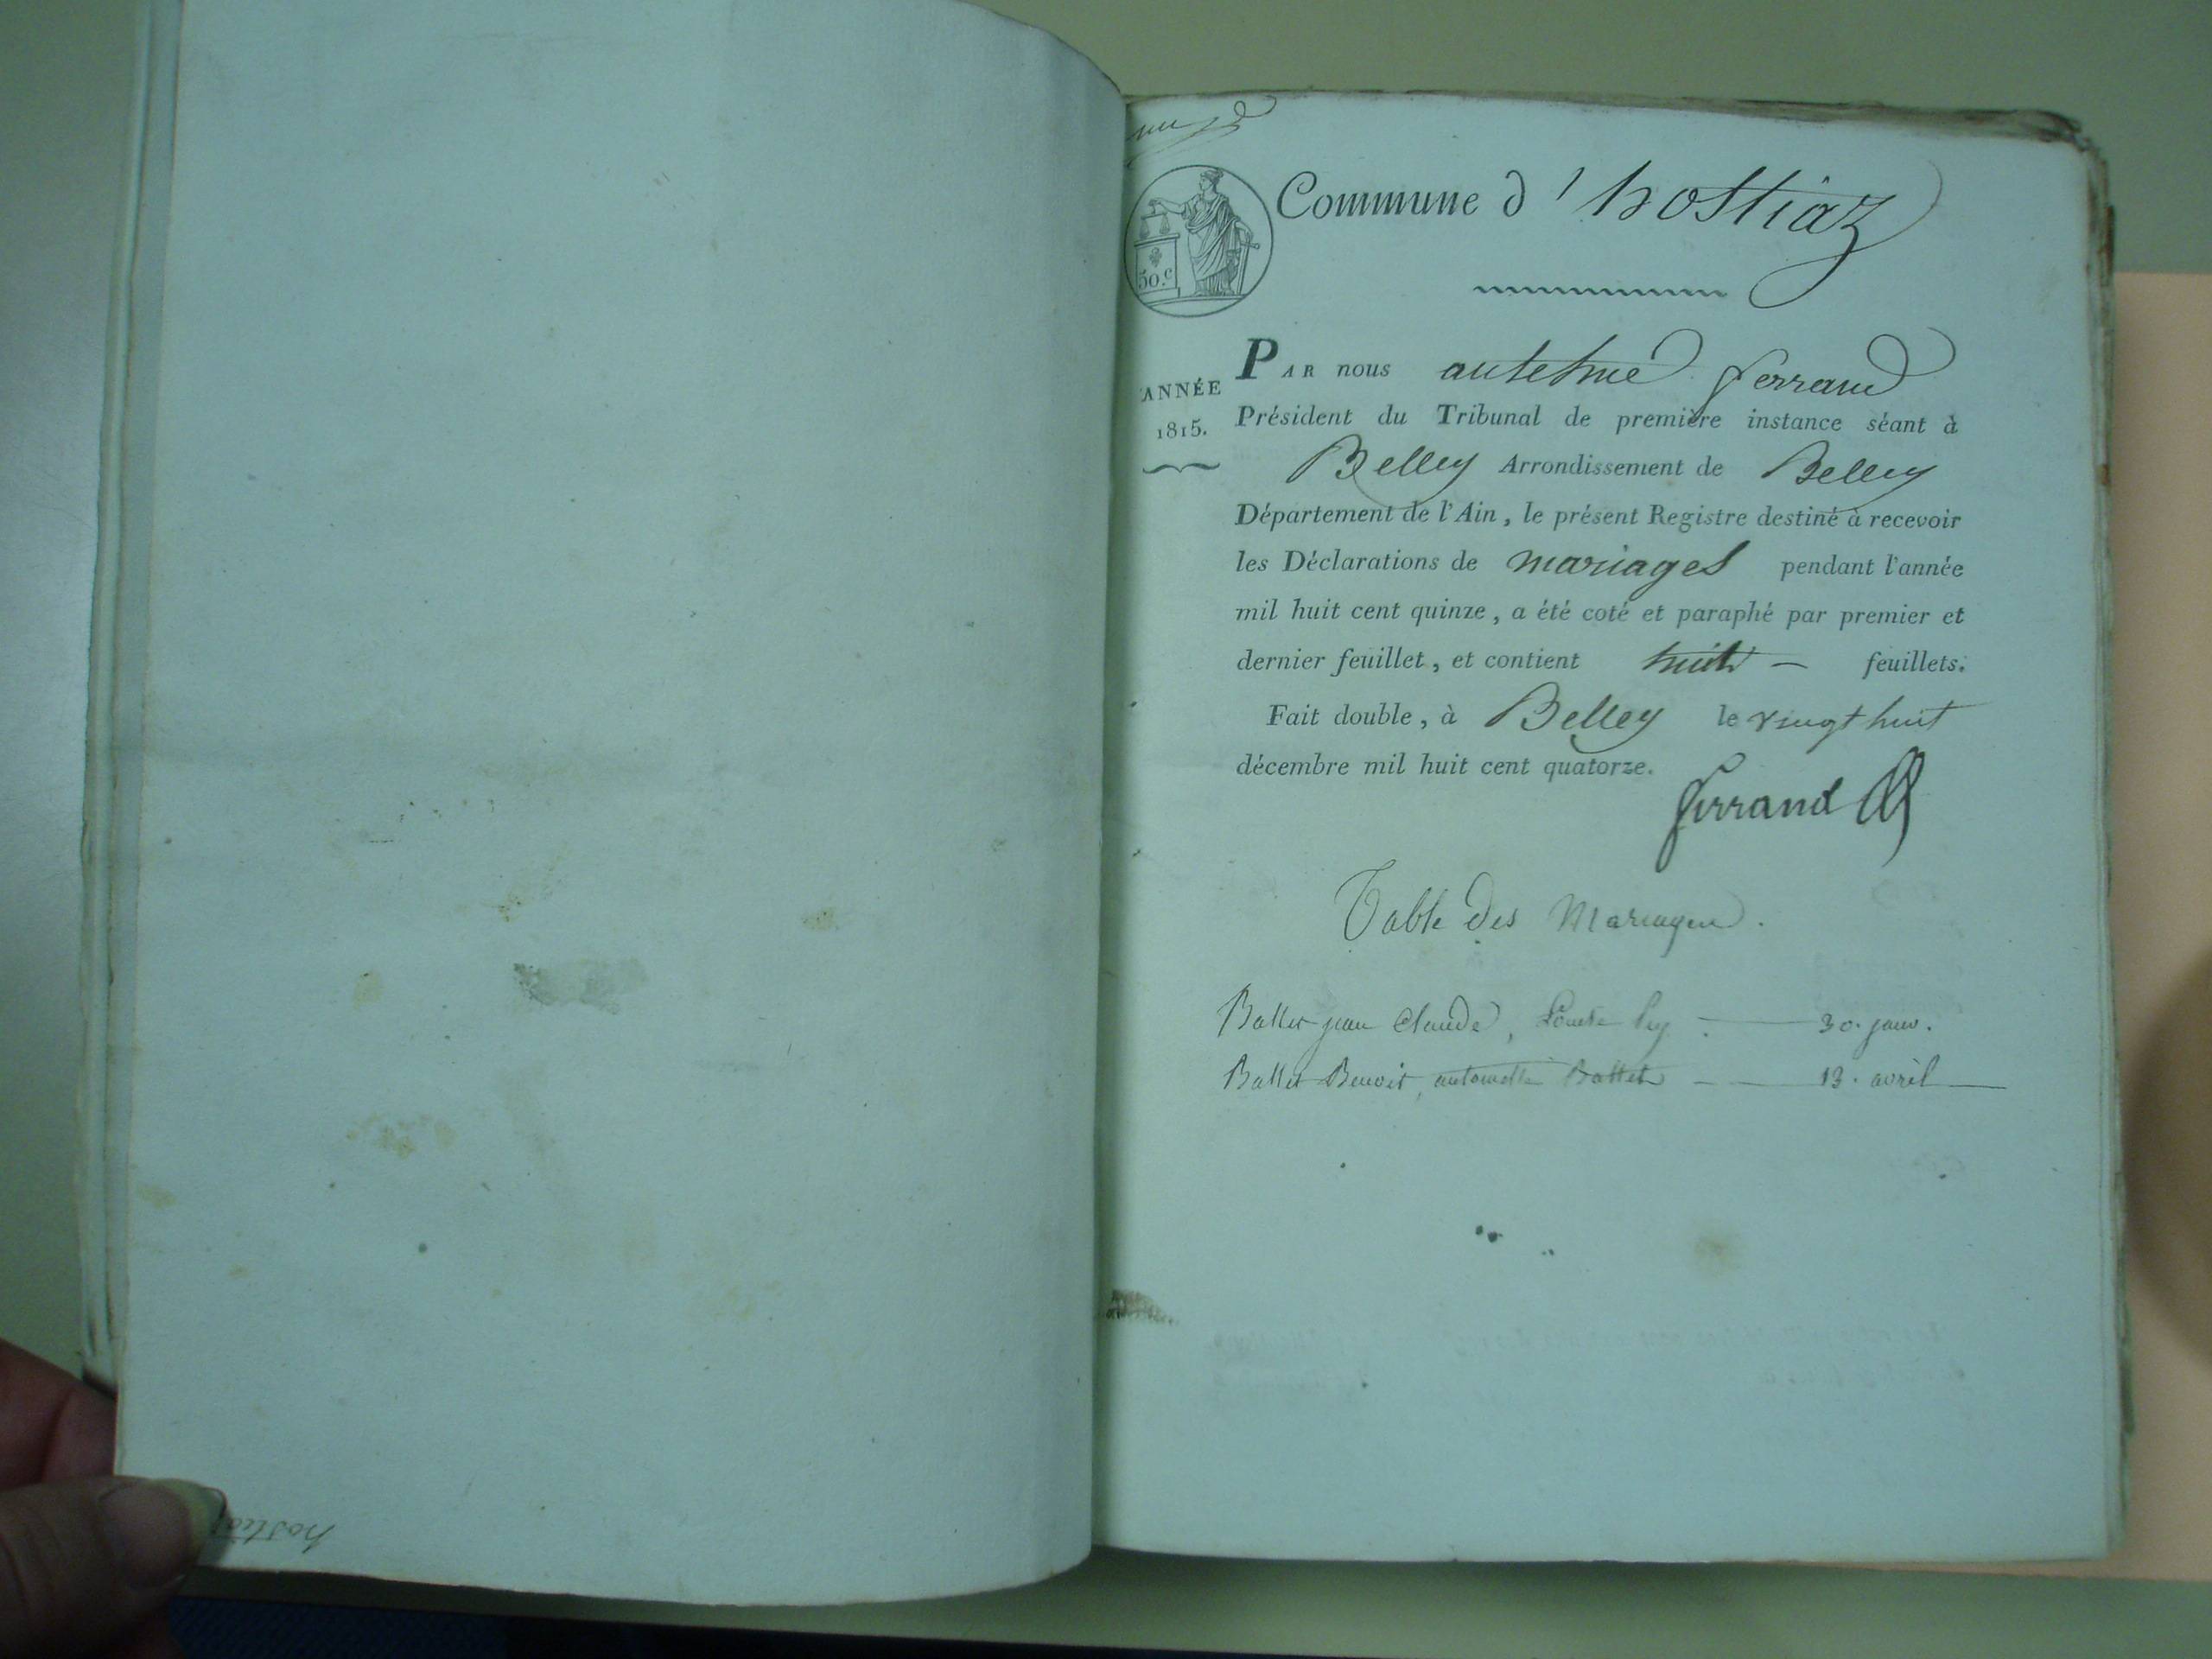 Commune d'hostiaz
50.c
ANNÉE
1815.
PAR nous antelme ferrand
Président du Tribunal de première instance séant à
Belley Arrondissement de Belley
Département de l'Ain, le présent Registre destiné à recevoir
les Déclarations de mariages pendant l'année
mil huit cent quinze, a été coté et paraphé par premier et
dernier feuillet, et contient huit — feuillets.
Fait double, à Belley le vingt huit
décembre mil huit cent quatorze.
ferrand
Table des Mariages.
Ballet jean Claude, 30. janv.
Ballet Benoit, antoinette Ballet — 13. avril —